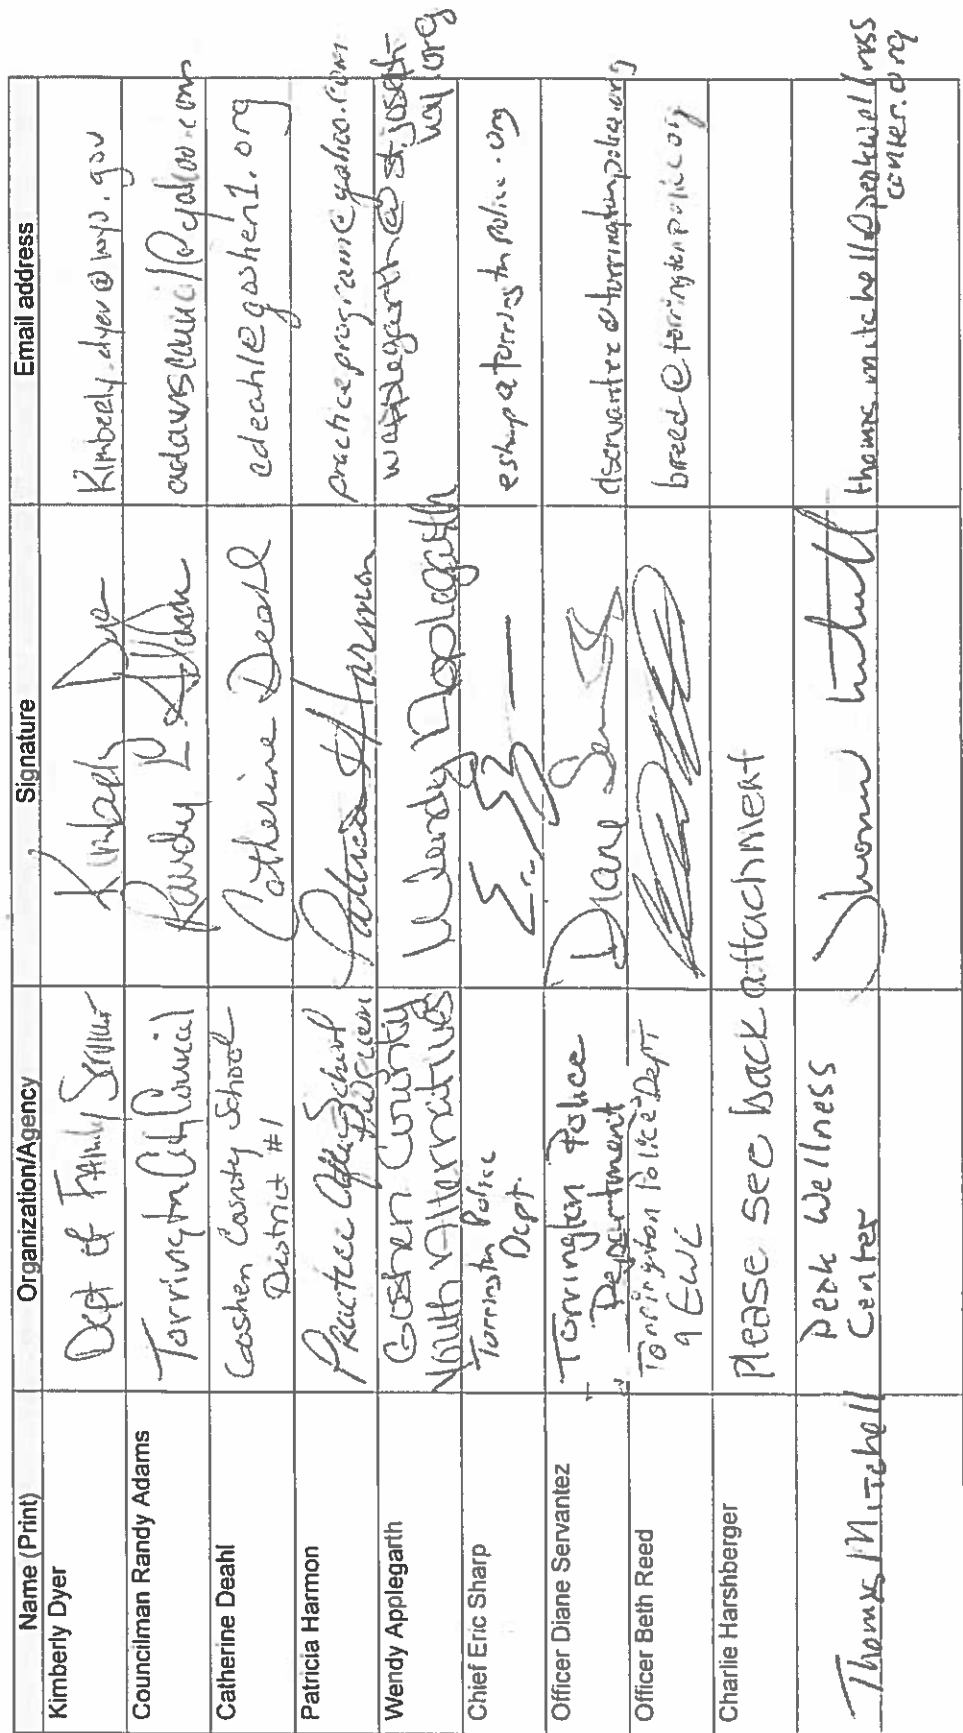 Name (Print) Organization/Agency Signature Email address
Kimberly Dyer Dept of Family Services Kimberly Dyer Kimberly.dyer@wyo.gov
Councilman Randy Adams Torrington City Council Randy L Adams adamscouncil@yahoo.com
Catherine Deahl Goshen County School Catherine Deahl cdeahl@goshen1.org
District #1
Patricia Harmon Practice After School Patricia Harmon practiceprogram@yahoo.com
Program
Wendy Applegarth Goshen County Wendy Applegarth wapplegarth@st.joseph-
Youth Alternatives
Chief Eric Sharp Torrington Police esharp@torringtonpolice.org
Dept.
Officer Diane Servantez Torrington Police Diane dservantez@torringtonpolice.org
Department
Officer Beth Reed Torrington Police Dept breed@torringtonpolice.org
EWC
Charlie Harshberger Please see back attachment
Thomas Mitchell Peak Wellness Thomas Mitchell thomas.mitchell@peakwellness
Center center.org